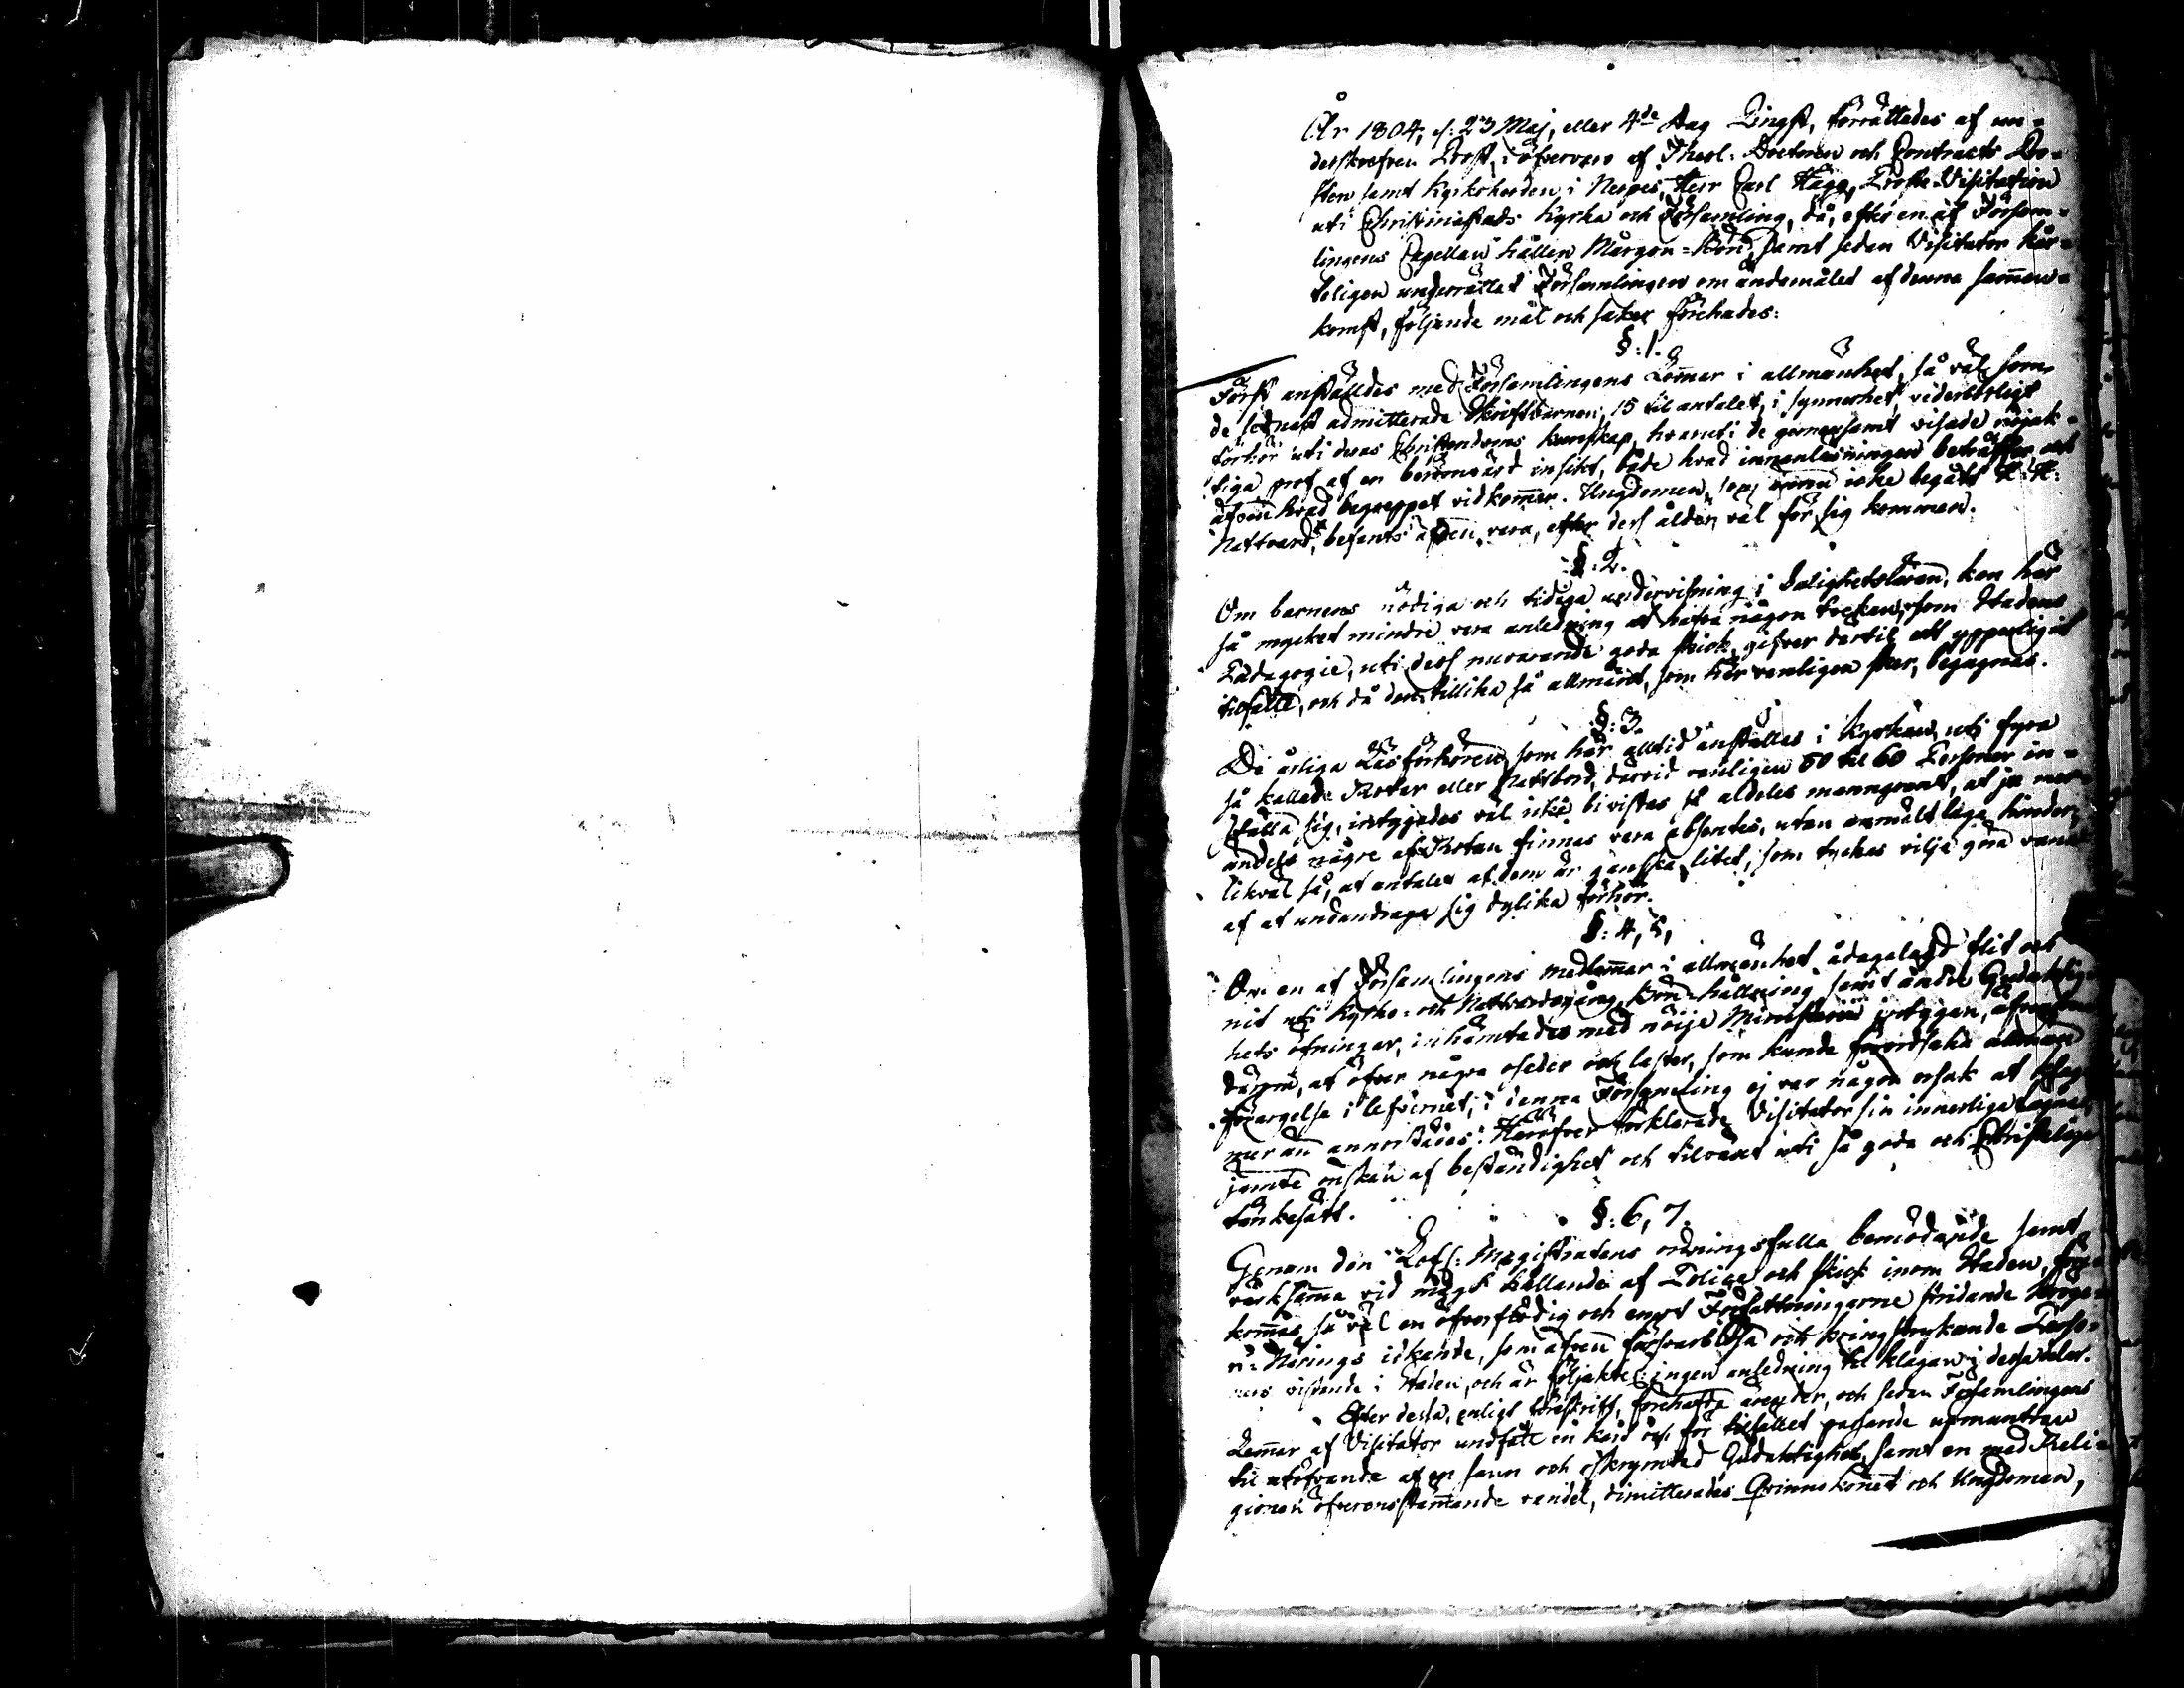 År 1804, d: 23 Maj, eller 4de Dag Pingst, förrättades af un-
derskrefven Prost, i öfvervaro af Theol: Doctoren och Contracts Pro-
sten samt Kyrkoherden i Nerpes, Herr Carl Hägg, Proste-Visitation
uti Christinæstads Kyrka och Församling, då, efter en af Försam-
lingens Capellan hållen Morgon-Bön, samt sedan Visitator kär-
teligen underrättat Församlingen om ändamålet af denna samman-
komst, följande mål och saker förehades:
§: 1.
Först anstäldes med Församlingens Lemmar i allmänhet, så väl som
de sednast admitterade Skriftbarnen, 15 til antalet, i synnerhet, vederbörligt
förhör uti deras Christendoms kunskap, hvaruti de gemensamt visade nöjak-
tiga prof af en berömvärd insikt, både hvad innanläsningen beträffar och
äfven hvad begreppet vidkommer. Ungdomen, som ännu icke begått H. H.
Nattvard, befants äfven vara, efter dess ålder, väl för sig kommen.
§: 2.
Om barnens nödiga och tidiga undervisning i Salighetsläran, kan här
så mycket mindre vara anledning at hafva någon tvekan, som Stadens
Pædagogie, uti dess nuvarande goda skick, gifver dertil ett ypperligit
tilfälle, och då den tillika så allmänt, som här vanligen sker, begagnas.
§: 3.
De årliga Läsförhören, som här alltid anställas i Kyrkan, uti fyra
så kallade Rotar eller Nattbord, dervid vanligen 50 til 60 Personer in-
ställa sig, intygades väl icke bivistas så aldeles manngrant, at ju mer-
ändels någre af Rotan finnas vara absentes, utan anmäldt laga hinder,
likväl så, at antalet af dem är ganska litet, som tyckas vilja göra vana
af at undandraga sig dylika förhör.
§: 4, 5,
Om en af Församlingens medlemmar i allmänhet ådagalagd flit och
nit uti Kyrko- och Nattvardsgång, Bön-hållning samt andre Gudaktig-
hets öfningar, inhämtades med nöije Ministerii intygan,
derom, at öfver några oseder och laster, som kunde förorsaka allmän
förargelse i lefvernet, i denna Församling ej var någon orsak at klaga
mer än annorstädes. Häröfver förklarade Visitator sin innerliga fägnad,
jemte önskan af beständighet och tilväxt uti så goda och Christeliga
tänkesätt.
§: 6, 7.
Genom den Lofl: Magistratens ordningsfulla bemödande samt
verksamma vid magt hållande af Police och skick inom Staden, före-
kommas så väl en öfverflödig och emot Författningarne stridande Kroge-
ri-Närings idkande, som äfven försvarslösa och kringstrykande Perso-
ners vistande i Staden, och är följakteligen ingen anledning til klagan i dessa delar.
Efter dessa, enligt föreskrift, förehafda ärender, och sedan Församlingens
Lemmar af Visitator undfått en kärlig och för tilfället passande upmuntran
til utöfvande af en sann och oskrymtad Gudaktighet, samt en med Reli-
gionen öfverensstämmande vandel, dimitterades Qvinnokönet och Ungdomen,